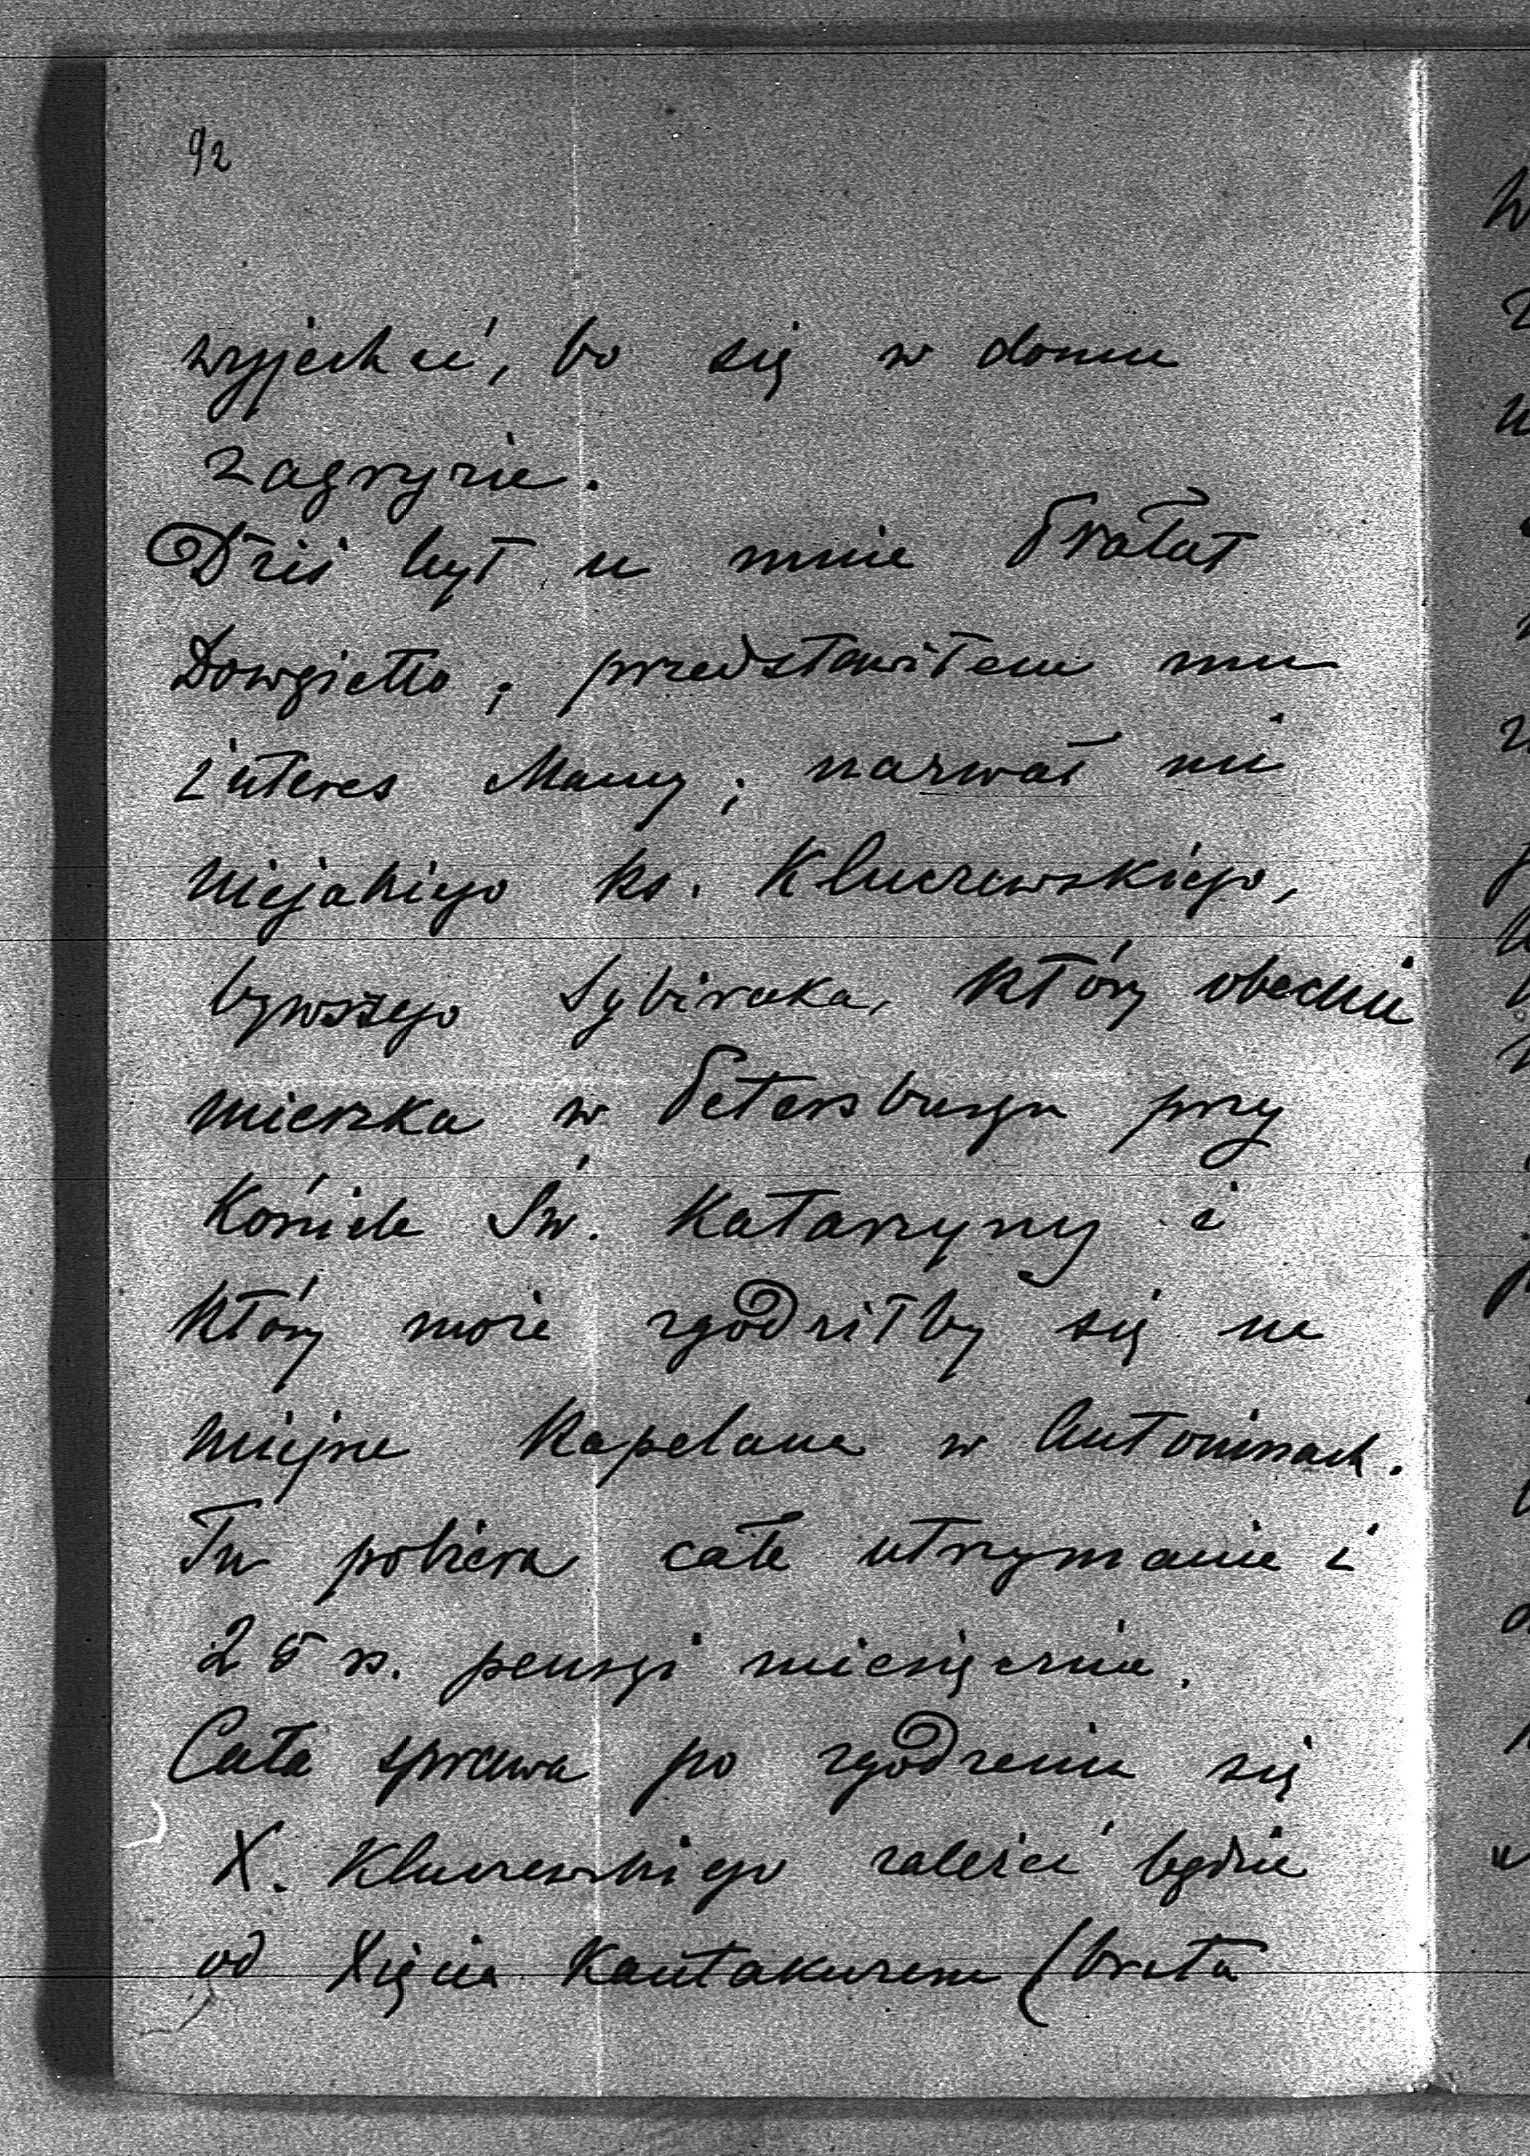 92
wyjechać, bo się w domu
zagryzie.
Dziś był u mnie Prałat
Dowgiełło; przedstawiłem mu
interes Mamy; nazwał mi
niejakiego ks. Kluczewskiego,
bywszego Sybiraka, który obecnie
mieszka w Petersburgu przy
Kościele Św. Katarzyny i
który może zgodziłby się na
miejsce Kapelana w Antoninach.
Tu pobiera całe utrzymanie i
25 rs. pensyi miesięcznie.
Cała sprawa po zgodzeniu się
X. Kluczewskiego zależeć będzie
od Xięcia Kantakuzena (brata